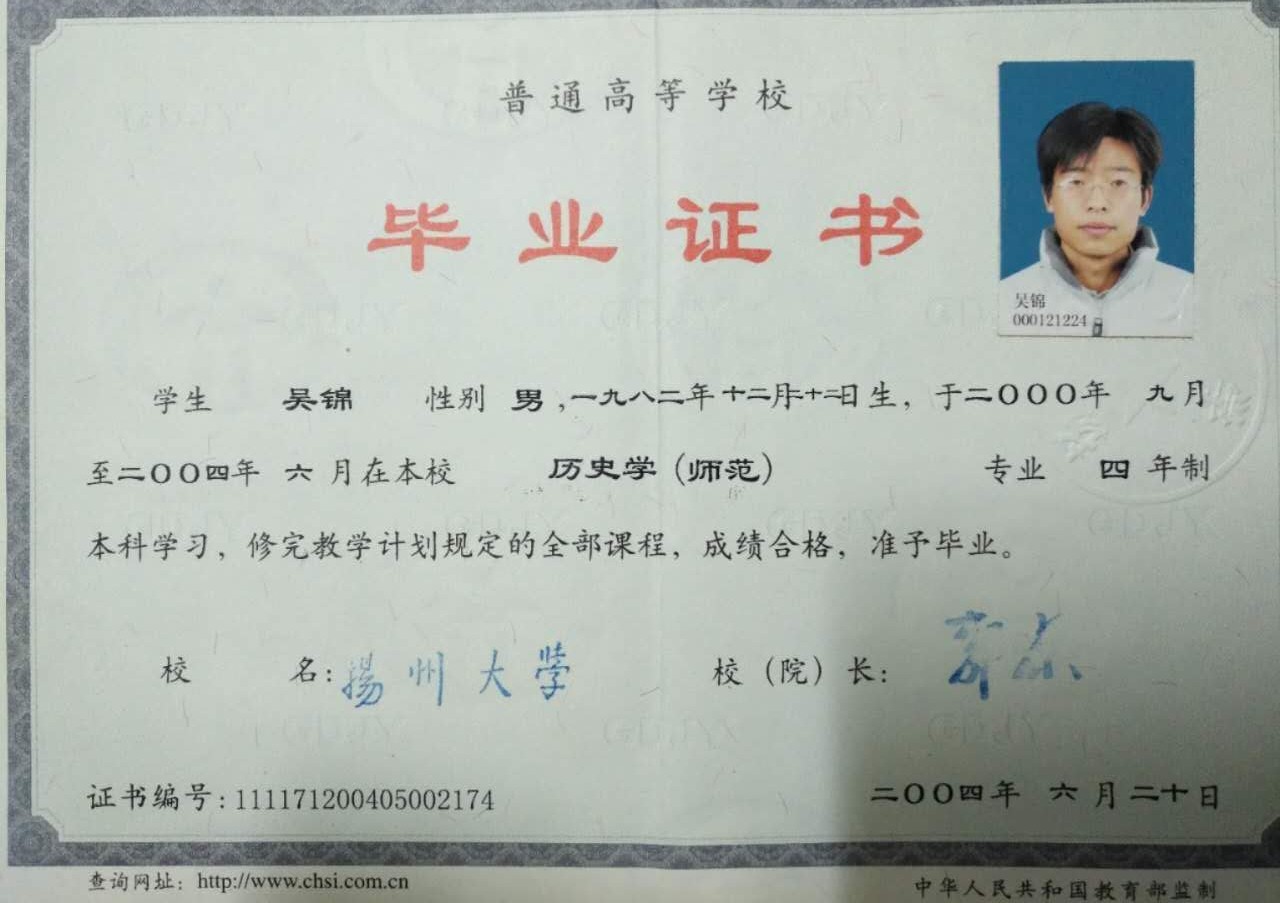 普通高等学校
毕业证书
吴锦
000121224
学生 吴锦 性别 男,一九八二年十二月二十二日生,于二〇〇〇年 九月
至二〇〇四年 六月在本校 历史学(师范) 专业 四年制
本科学习,修完教学计划规定的全部课程,成绩合格,准予毕业。
校 名:揚州大學 校(院)长:
证书编号:111171200405002174 二〇〇四年 六月二十日
查询网址:http://www.chsi.com.cn 中华人民共和国教育部监制